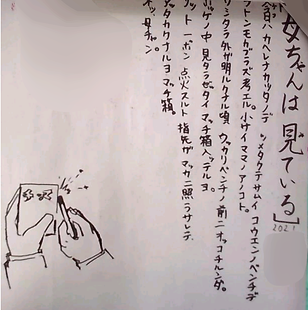 母ちゃんは見ている」2021
今日ハカヘレナカッタノデ ツメタクテサムイ コウエンノベンチデ
フトンモカブラズ考エル。小サイママノアノコト。
ソシタラ外ガ明ルクナル頃 ウッカリベンチノ前ニオッコチルンダ。
ノ中見タラゼタイマッチ箱入ッテルヨ。
ット一ポン点火スルト 指先ガマッカニ照ラサレテ
タカクナルヨマッチ箱。
オッ母チャン。